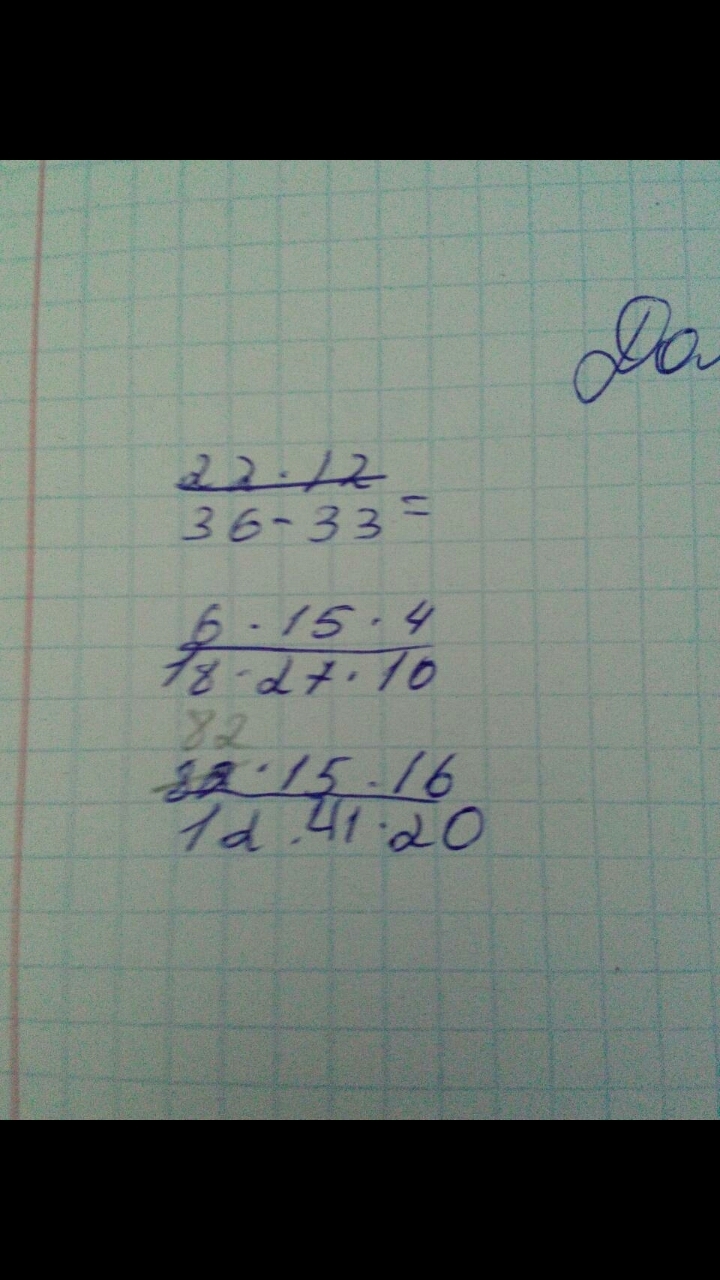 До
22·12
36-33 =
6·15·4
18·27·10
82
15·16
12·41·20